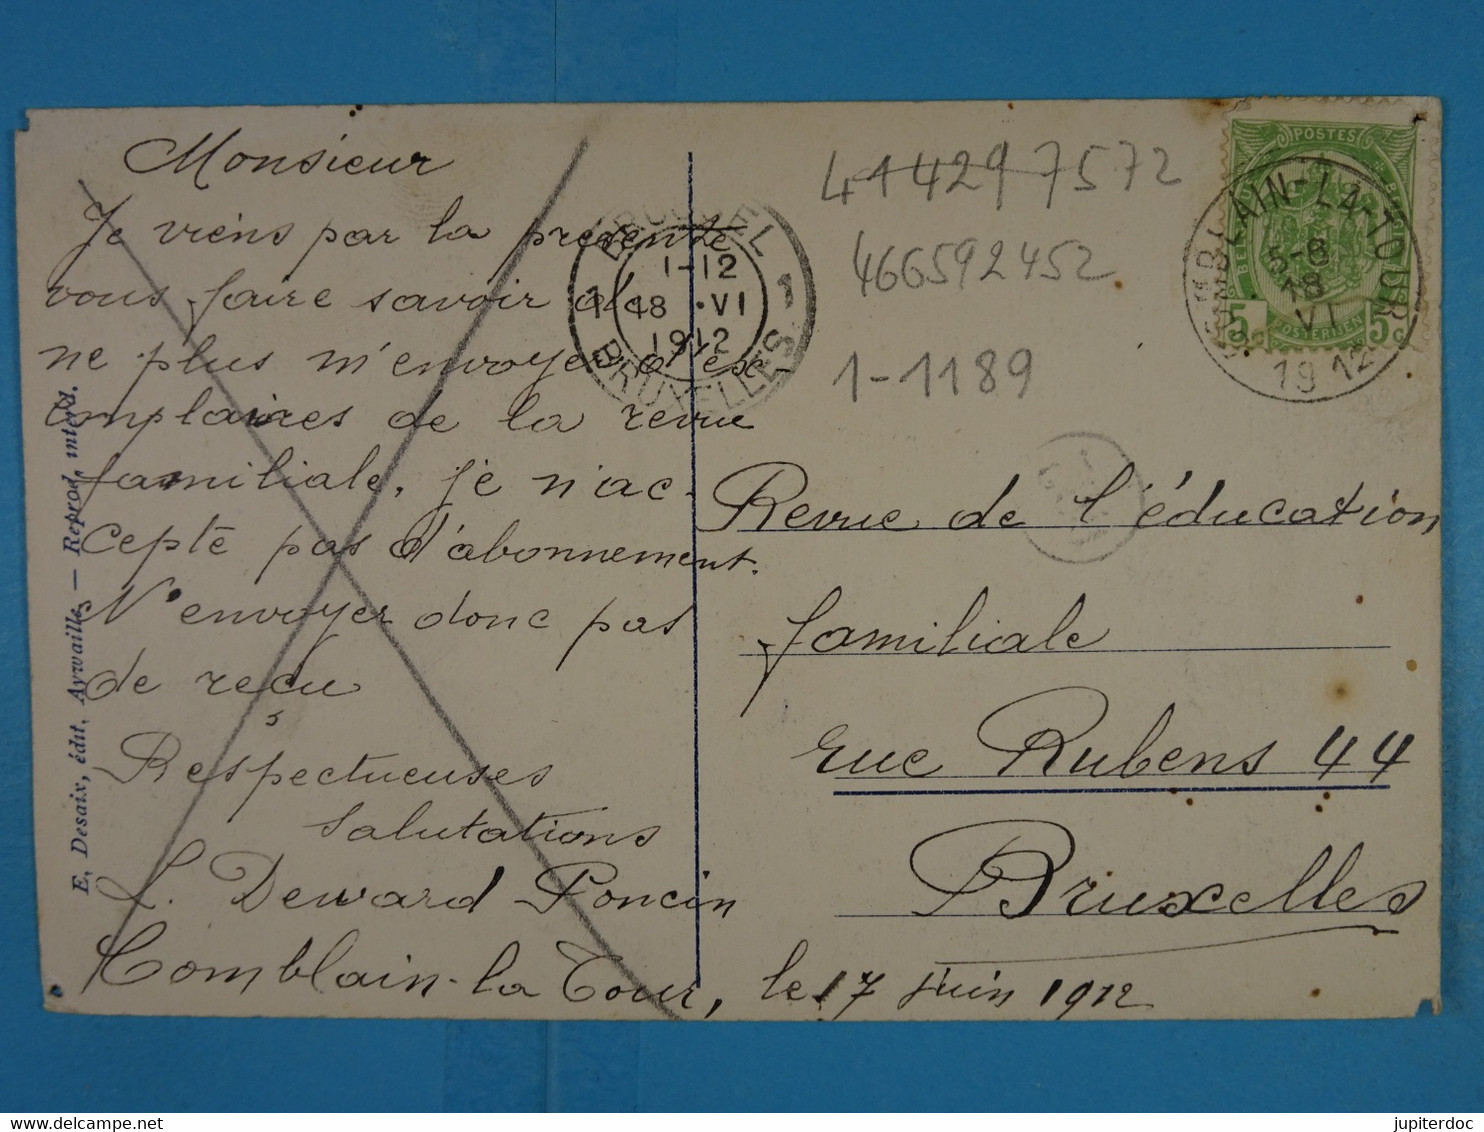 Monsieur
Je viens par la presente
vous faire savoir de
ne plus m'envoyer d'ex-
emplaires de la revue
familiale, je n'ac-
cepte pas d'abonnement.
N'envoyer donc pas
de reçu
Respectueuses
salutations
L. Deward Poncin
Comblain-la Tour, le 17 juin 1912
E. Desaix, édit. Aywaille. — Reprod. interd.
BRUSSEL
1-12
1 18 VI 1
1912
BRUXELLES
41429 7572
466592452
1-1189
POSTES
5c 5c
POSTERIJEN
COMBLAIN-LA-TOUR
5-8
18
VI
1912
Revue de l'éducation
familiale
rue Rubens 44
Bruxelles
jupiterdoc